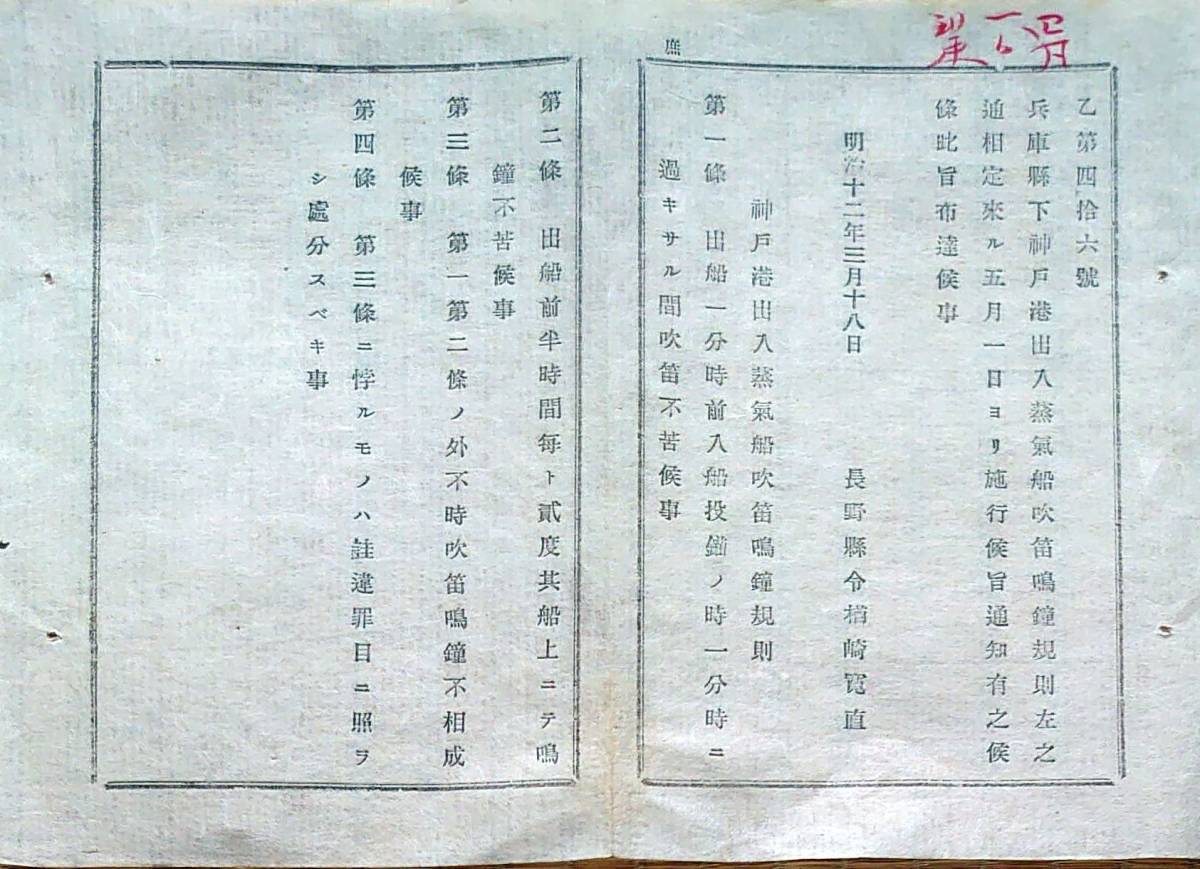 乙第四拾六號
兵庫縣下神戶港出入蒸氣船吹笛鳴鐘規則左之
通相定來ル五月一日ヨリ施行候旨通知有之候
條此旨布達候事
明治十二年三月十八日　長野縣令楢崎寛直
神戶港出入蒸氣船吹笛鳴鐘規則
第一條　出船一分時前入船投錨ノ時一分時ニ
過キサル間吹笛不苦候事
庶
第二條　出船前半時間每ト貳度其船上ニテ鳴
鐘不苦候事
第三條　第一第二條ノ外不時吹笛鳴鐘不相成
候事
第四條　第三條ニ悖ルモノハ註違罪目ニ照ヲ
シ處分スベキ事